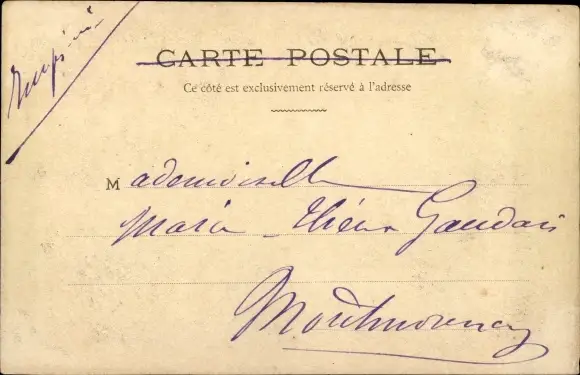 Imprimé
CARTE POSTALE
Ce côté est exclusivement réservé à l'adresse
Mademoiselle
Gaudais
Montmorency